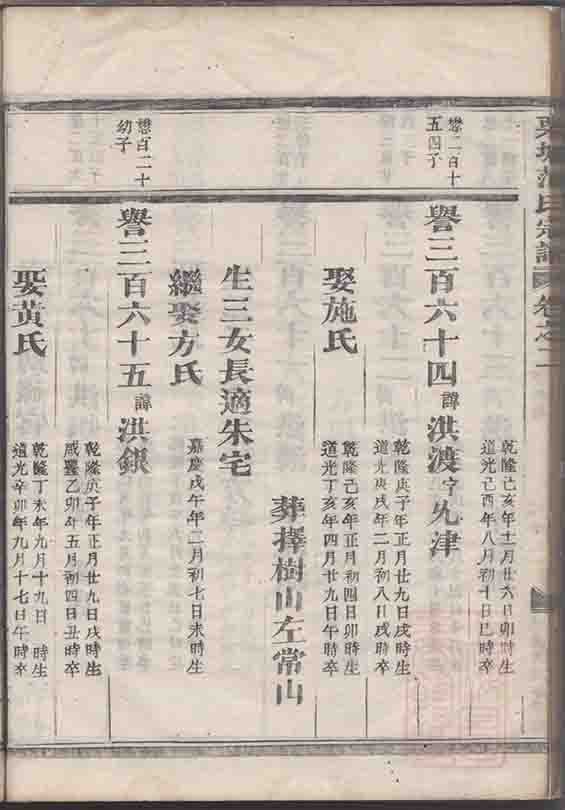 范氏宗譜 卷之二
乾隆己亥年十一月廿六日卯時生
道光己酉年八月初十日巳時卒
懋二百十
五四子
譽三百六十四 諱 洪渡 字 允津
乾隆庚子年正月廿九日戌時生
道光庚戌年二月初八日戌時卒
娶施氏
乾隆己亥年正月初四日卯時生
道光丁亥年四月廿九日午時卒
葬擇樹山左常山
生三女長適朱宅
繼娶方氏
嘉慶戊午年二月初七日未時生
懋百二十
幼子
譽三百六十五 諱 洪銀
乾隆庚子年正月廿九日戌時生
咸豐乙卯年五月初四日丑時卒
娶黃氏
乾隆丁未年九月十九日 時生
道光辛卯年九月十七日午時卒